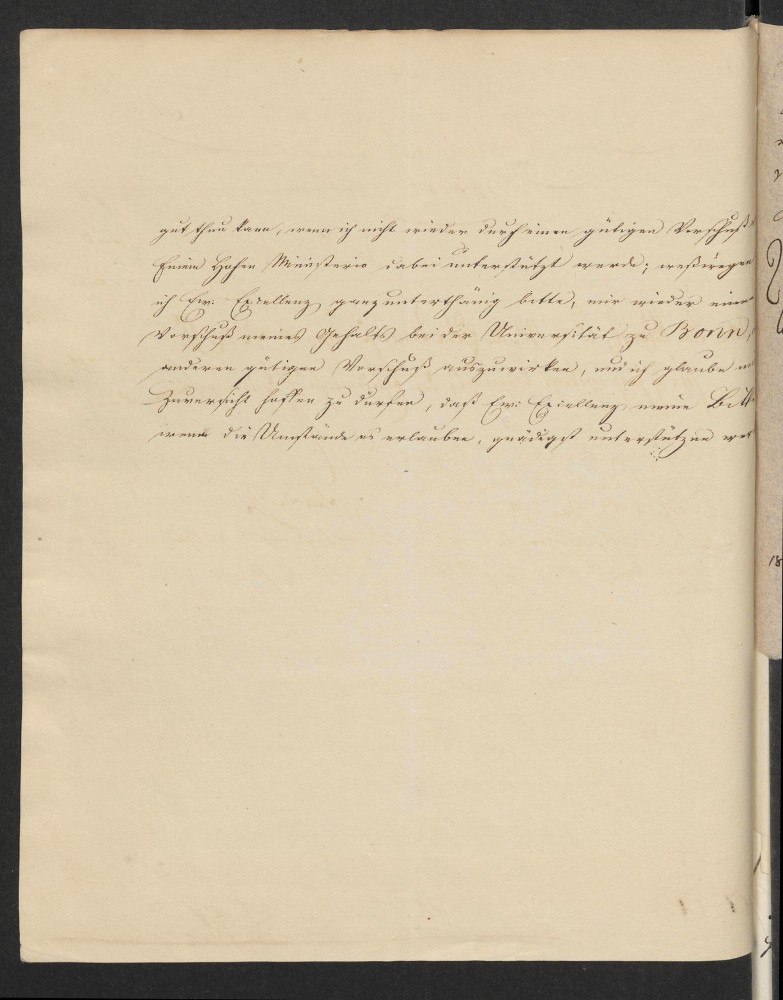 gut thun kann, wenn ich nicht wieder durch einen gütigen Vorschuß
Einem Hohen Ministerio dabei unterstützt werde; weßwegen
ich Ew: Excellenz ganz unterthänig bitte, mir wieder einen
Vorschuß meines Gehalts bei der Universität zu Bonn,
anderen gütigen Vorschuß auszuwirken, und ich glaube
Zuversicht hoffen zu dürfen, daß Ew: Excellenz meine Bitte
wenn die Umstände es erlauben, gnädigst unterstützen